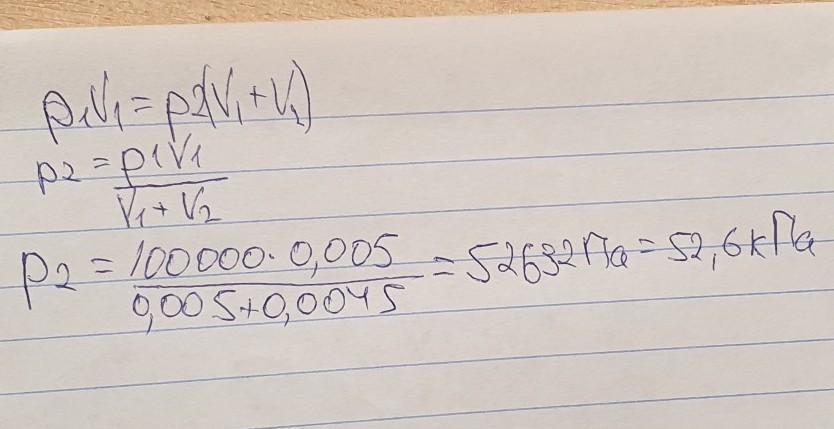 p₁V₁ = p2(V₁ + V₂)
p2 = p1V1 / V₁ + V₂
p2 = 100000 · 0,005 / 0,005 + 0,0045 = 52632 Па = 52,6 кПа